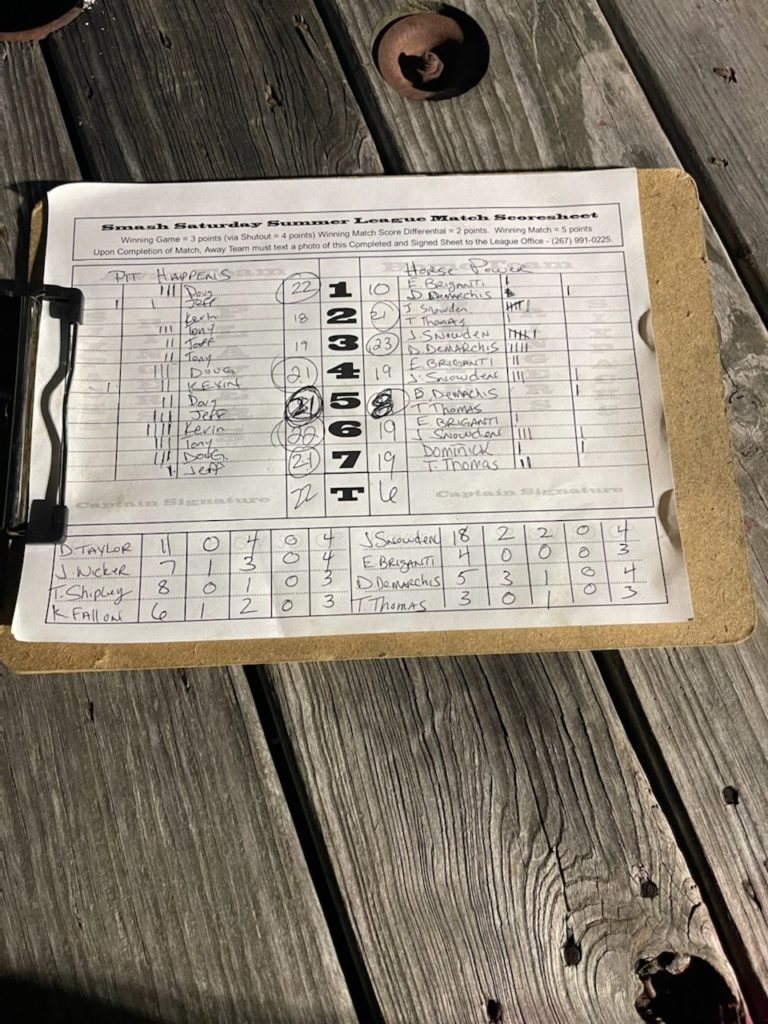 Smash Saturday Summer League Match Scoresheet
Winning Game = 3 points (via Shutout = 4 points) Winning Match Score Differential = 2 points. Winning Match = 5 points
Upon Completion of Match, Away Team must text a photo of this Completed and Signed Sheet to the League Office - (267) 991-0225.
PIT HAPPENS HORSE POWER
Doug 22 1 10 E BRIGANTI
Jeff D. DEMARCHIS
Kevin 18 2 21 J Snowden
Tony T Thomas
Jeff 19 3 23 J SNOWDEN
Tony D. DEMARCHIS
DOUG 21 4 19 E BRIGANTI
KEVIN J. Snowden
Doug 21 5 8 Demarchis
Jeff T THOMAS
Kevin 22 6 19 E BRIGANTI
Tony J SNOWDEN
DOUG. 21 7 19 DOMINICK
Jeff T. THOMAS
Captain Signature 22 T 6 Captain Signature
D TAYLOR 11 0 4 0 4 J SNOWDEN 18 2 2 0 4
7 1 3 0 4 E BRIGANTI 4 0 0 0 3
T. Shipley 8 0 1 0 3 D DEMARCHIS 5 3 1 0 4
K FALLON 6 1 2 0 3 T. THOMAS 3 0 1 0 3